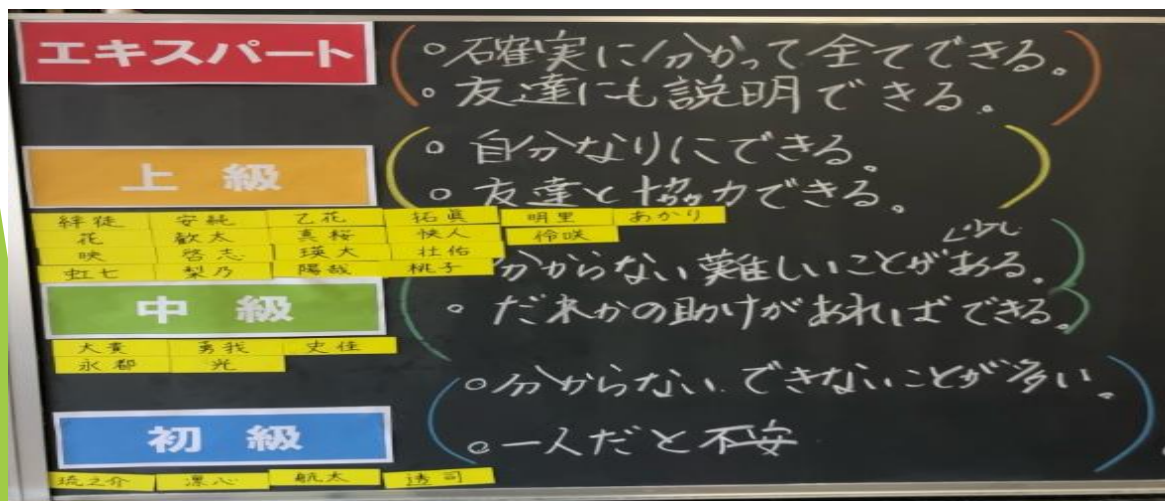 エキスパート
○確実に分かって全てできる。
○友達にも説明できる。
上 級
○自分なりにできる。
○友達と協力できる。
絆徒 安純 乙花 拓真 明里 あかり
花 歓太 真桜 快人 伶咲
映 啓志 瑛大 壮佑
虹七 梨乃 陽哉 桃子
中 級
少し
分からない難しいことがある。
○だれかの助けがあればできる。
大貴 勇我 史佳
永都 光
初 級
○分からない、できないことが多い。
○一人だと不安
琉之介 凛心 航太 透司